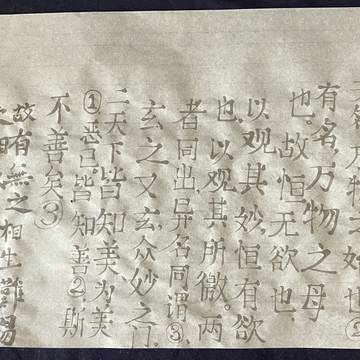 万物之始也②
有名,万物之母
也。故恒无欲也
以观其妙,恒有欲
也,以观其所徼。两
者同出,异名同谓③
玄之又玄,众妙之门。
二天下皆知美为美
①恶已。皆知善②斯
不善矣③
故有無之相生難易
之相